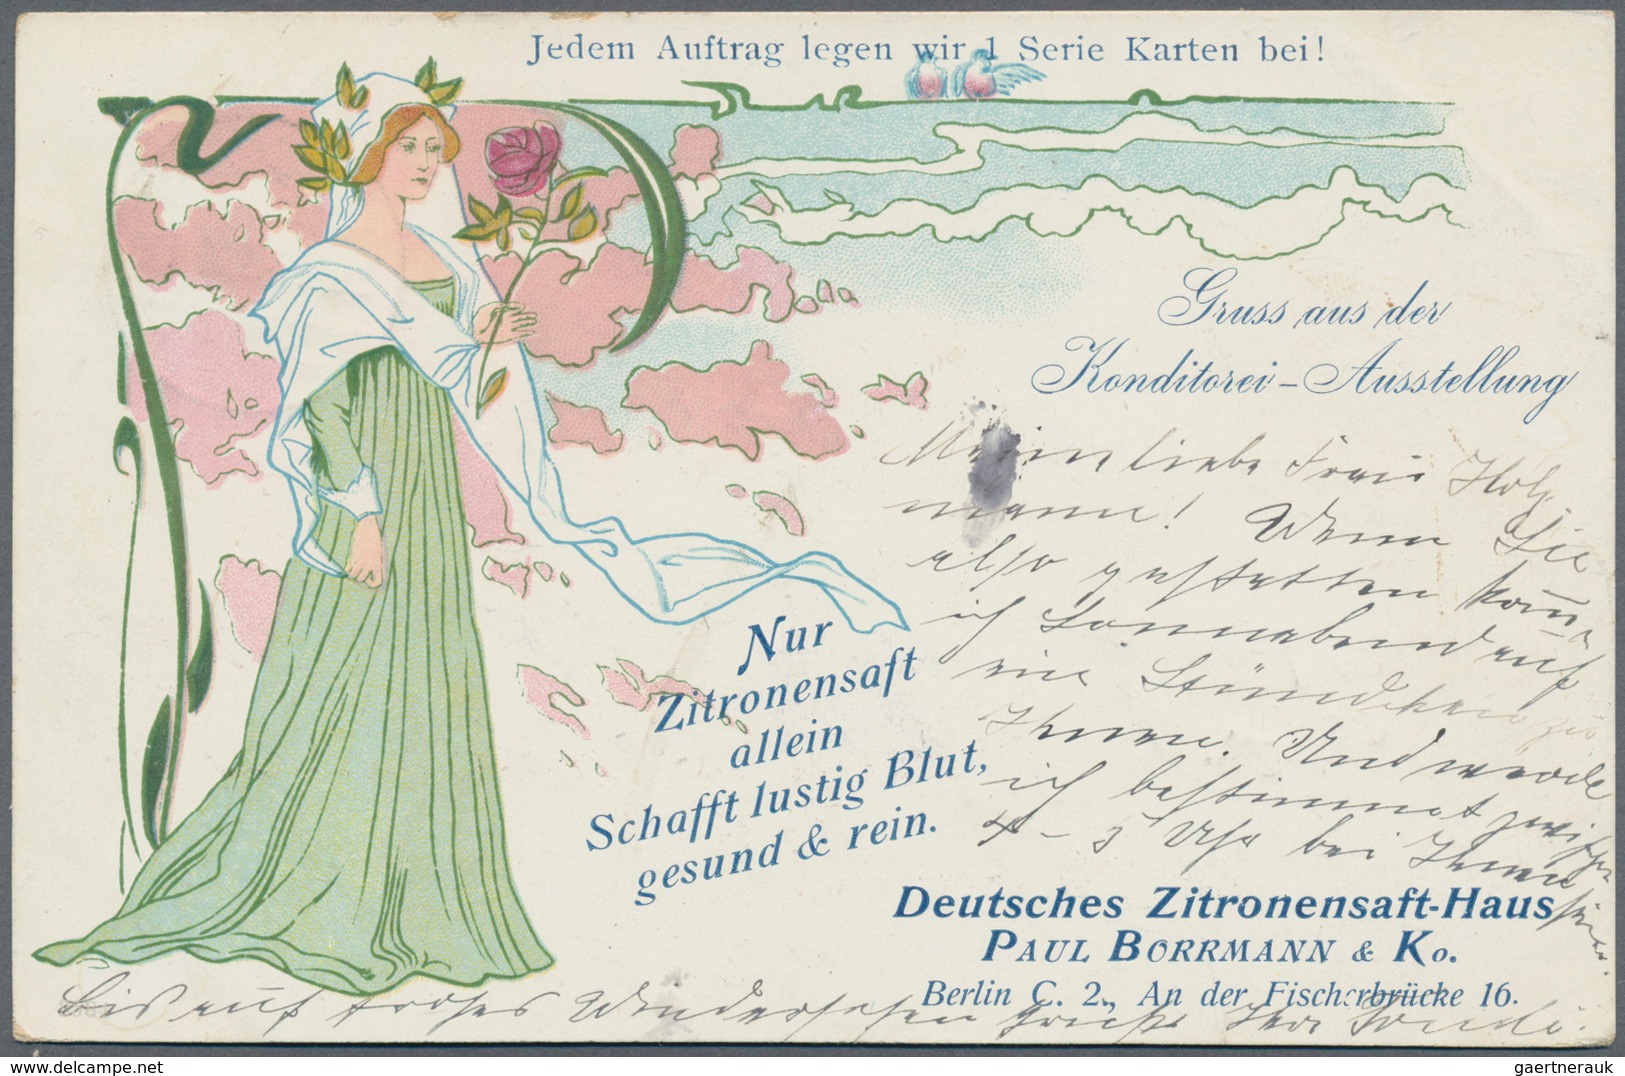 Jedem Auftrag legen wir 1 Serie Karten bei!
Gruss aus der
Konditorei-Ausstellung
Meine liebe Frau Holz-
mann! Wenn Sie
also gestatten komme
ich Sonnabend auf
ein Stündchen zu
Ihnen. Und werde
ich bestimmt zwischen
4 - 5 Uhr bei Ihnen
sein.
Nur
Zitronensaft
allein
Schafft lustig Blut,
gesund & rein.
Deutsches Zitronensaft-Haus
PAUL BORRMANN & Ko.
Berlin C. 2., An der Fischerbrücke 16.
Bis auf frohes Wiedersehen grüßt Ihre
gaertnerauk